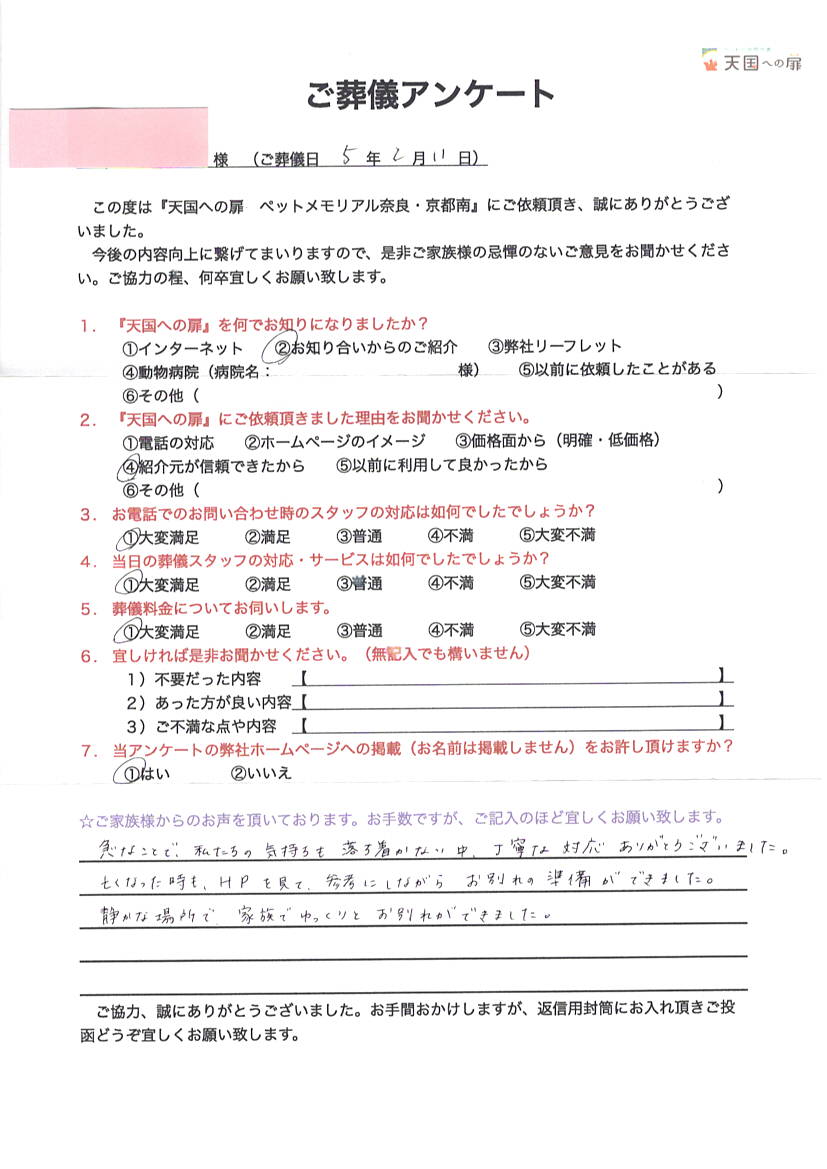 天国への扉
ご葬儀アンケート
様 （ご葬儀日 5 年 2 月 11 日）
この度は『天国への扉 ペットメモリアル奈良・京都南』にご依頼頂き、誠にありがとうござ
いました。
今後の内容向上に繋げてまいりますので、是非ご家族様の忌憚のないご意見をお聞かせくださ
い。ご協力の程、何卒宜しくお願い致します。
1． 『天国への扉』を何でお知りになりましたか？
①インターネット ②お知り合いからのご紹介 ③弊社リーフレット
④動物病院（病院名： 様） ⑤以前に依頼したことがある
⑥その他（ ）
2． 『天国への扉』にご依頼頂きました理由をお聞かせください。
①電話の対応 ②ホームページのイメージ ③価格面から（明確・低価格）
④紹介元が信頼できたから ⑤以前に利用して良かったから
⑥その他（ ）
3． お電話でのお問い合わせ時のスタッフの対応は如何でしたでしょうか？
①大変満足 ②満足 ③普通 ④不満 ⑤大変不満
4． 当日の葬儀スタッフの対応・サービスは如何でしたでしょうか？
①大変満足 ②満足 ③普通 ④不満 ⑤大変不満
5． 葬儀料金についてお伺いします。
①大変満足 ②満足 ③普通 ④不満 ⑤大変不満
6． 宜しければ是非お聞かせください。（無記入でも構いません）
1）不要だった内容 【 】
2）あった方が良い内容【 】
3）ご不満な点や内容 【 】
7． 当アンケートの弊社ホームページへの掲載（お名前は掲載しません）をお許し頂けますか？
①はい ②いいえ
☆ご家族様からのお声を頂いております。お手数ですが、ご記入のほど宜しくお願い致します。
急なことで、私たちの気持ちも落ち着かない中、丁寧な対応ありがとうございました。
亡くなった時も、HPを見て、参考にしながらお別れの準備ができました。
静かな場所で、家族でゆっくりとお別れができました。
ご協力、誠にありがとうございました。お手間おかけしますが、返信用封筒にお入れ頂きご投
函どうぞ宜しくお願い致します。